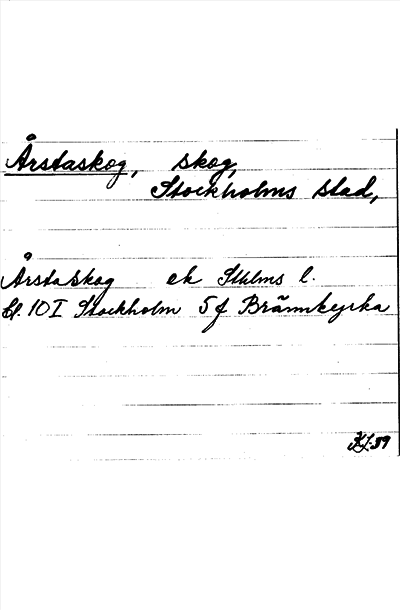 Årstaskog, skog,
Stockholms stad,
Årstaskog ek Sthlms l.
bl. 10 I Stockholm 5 f Brännkyrka
KJ.59